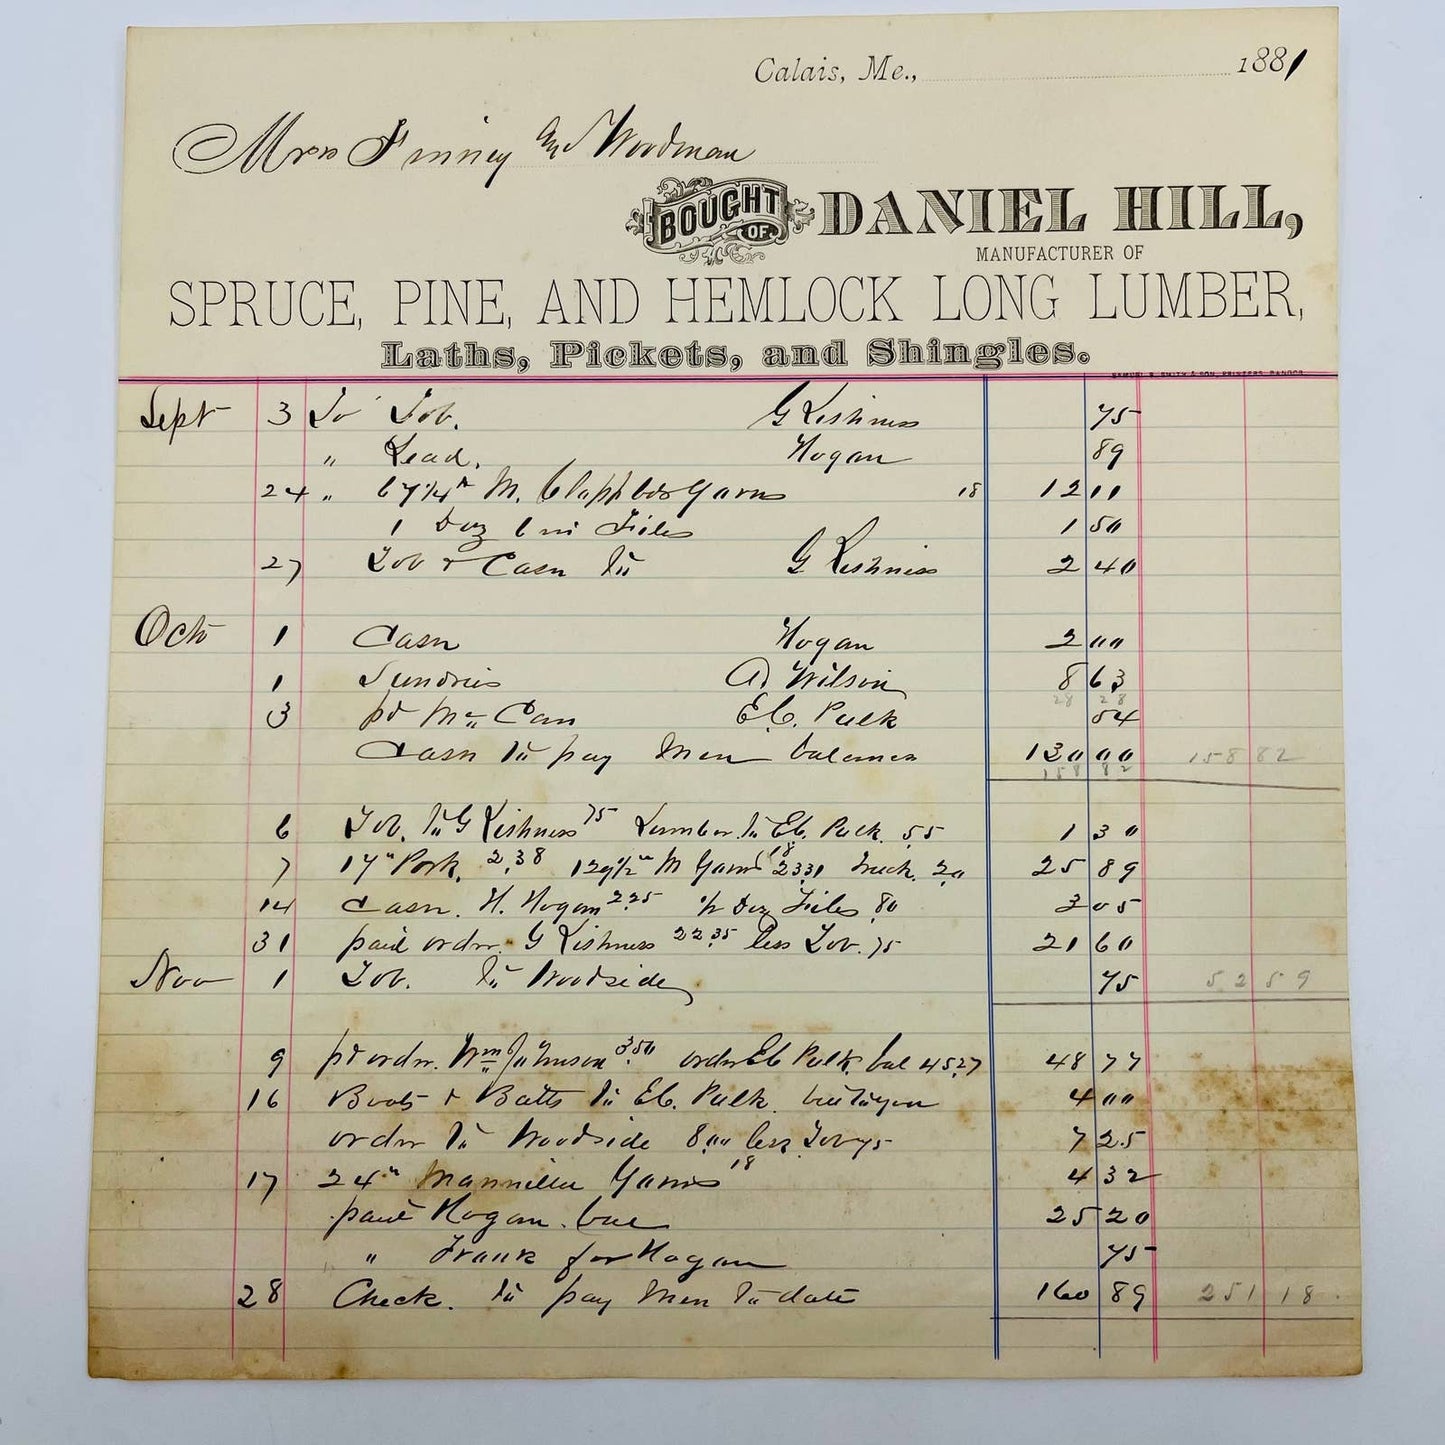 Calais, Me., 1881
Mrss Finney and Woodman
BOUGHT OF DANIEL HILL,
MANUFACTURER OF
SPRUCE, PINE, AND HEMLOCK LONG LUMBER,
Laths, Pickets, and Shingles.
SAMUEL S. SMITH & SON, PRINTERS, BANGOR.
Sept 3 To Tob. G Kishniss 75
" Lead. Hogan 89
24 " 67 1/4 M. 18 12 11
1 Doz 6 in Files 1 50
27 Tob & Cash To G Kishniss 2 40
Octo 1 Cash Hogan 2 00
1 Sundries A Wilson 8 63
28 28
3 pd Mc Can E.C. Pulk 54
Cash To pay Men balances 130 00 158 82
158 82
6 Tob. To G Kishness 75 Lumber To Eb. Pulk. 55 1 30
7 17" Pork, 2,38 129 1/2 M 18 2331 Truck. 20 25 89
14 Cash. H. Hogan 2.25 1/2 Doz Files 80 3 05
31 paid order G Kishness 22.35 less Tob. 75 21 60
Nov 1 Tob. To Woodside 75 52 59
9 pd order. Wm Johnson 3.50 order Eb Pulk. bal 45.27 48 77
16 Boots & To Eb. Pulk. 4 00
order To Woodside 8.00 less Tob 75 7 25
17 24" Mannilla 18 4 32
paid Hogan. bal 25 20
" Frank for Hogan 75
28 Check. To pay Men To date 160 89 251 18